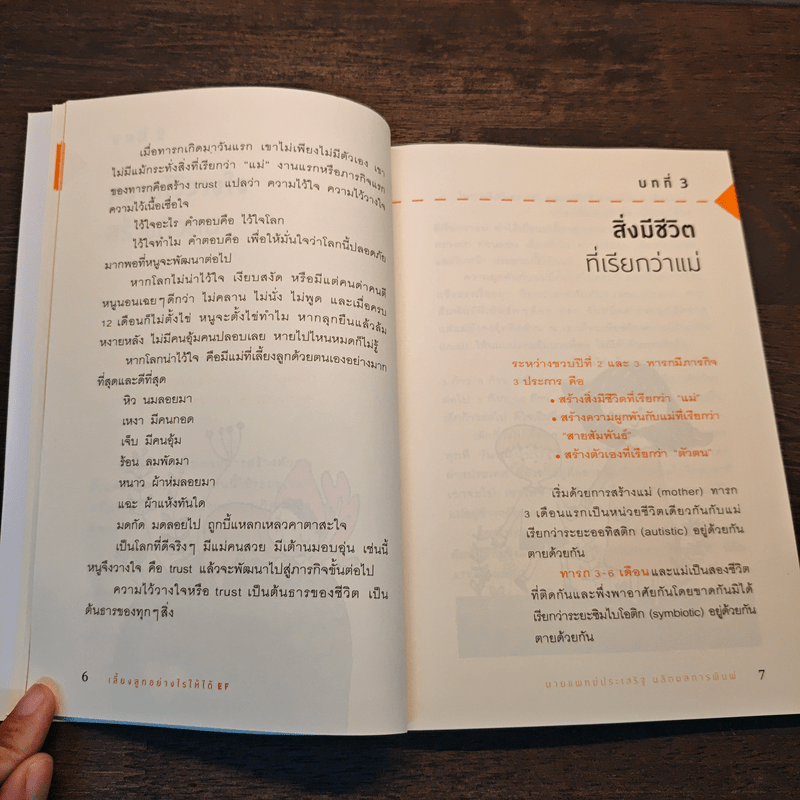 เมื่อทารกเกิดมาวันแรก เขาไม่เพียงไม่มีตัวเอง เขา
ไม่มีแม้กระทั่งสิ่งที่เรียกว่า “แม่” งานแรกหรือภารกิจแรก
ของทารกคือสร้าง trust แปลว่า ความไว้ใจ ความไว้วางใจ
ความไว้เนื้อเชื่อใจ
ไว้ใจอะไร คำตอบคือ ไว้ใจโลก
ไว้ใจทำไม คำตอบคือ เพื่อให้มั่นใจว่าโลกนี้ปลอดภัย
มากพอที่หนูจะพัฒนาต่อไป
หากโลกไม่น่าไว้ใจ เงียบสงัด หรือมีแต่คนด่าคนตี
หนูนอนเฉยๆ ดีกว่า ไม่คลาน ไม่นั่ง ไม่พูด และเมื่อครบ
12 เดือนก็ไม่ตั้งไข่ หนูจะตั้งไข่ทำไม หากลุกยืนแล้วล้ม
หงายหลัง ไม่มีคนอุ้มคนปลอบเลย หายไปไหนหมดก็ไม่รู้
หากโลกน่าไว้ใจ คือมีแม่ที่เลี้ยงลูกด้วยตนเองอย่างมาก
ที่สุดและดีที่สุด
หิว นมลอยมา
เหงา มีคนกอด
เจ็บ มีคนอุ้ม
ร้อน ลมพัดมา
หนาว ผ้าห่มลอยมา
แฉะ ผ้าแห้งทันใด
มดกัด มดลอยไป ถูกบี้แหลกเหลวคาตาสะใจ
เป็นโลกที่ดีจริงๆ มีแม่คนสวย มีเต้านมอบอุ่น เช่นนี้
หนูจึงวางใจ คือ trust แล้วจะพัฒนาไปสู่ภารกิจขั้นต่อไป
ความไว้วางใจหรือ trust เป็นต้นธารของชีวิต เป็น
ต้นธารของทุกๆ สิ่ง
6 เลี้ยงลูกอย่างไรให้ได้ EF
บทที่ 3
สิ่งมีชีวิต
ที่เรียกว่าแม่
ระหว่างขวบปีที่ 2 และ 3 ทารกมีภารกิจ
3 ประการ คือ
• สร้างสิ่งมีชีวิตที่เรียกว่า “แม่”
• สร้างความผูกพันกับแม่ที่เรียกว่า
“สายสัมพันธ์”
• สร้างตัวเองที่เรียกว่า “ตัวตน”
เริ่มด้วยการสร้างแม่ (mother) ทารก
3 เดือนแรกเป็นหน่วยชีวิตเดียวกันกับแม่
เรียกว่าระยะออทิสติก (autistic) อยู่ด้วยกัน
ตายด้วยกัน
ทารก 3-6 เดือนและแม่เป็นสองชีวิต
ที่ติดกันและพึ่งพาอาศัยกันโดยขาดกันมิได้
เรียกว่าระยะซิมไบโอติก (symbiotic) อยู่ด้วยกัน
ตายด้วยกัน
นายแพทย์ประเสริฐ ผลิตผลการพิมพ์ 7